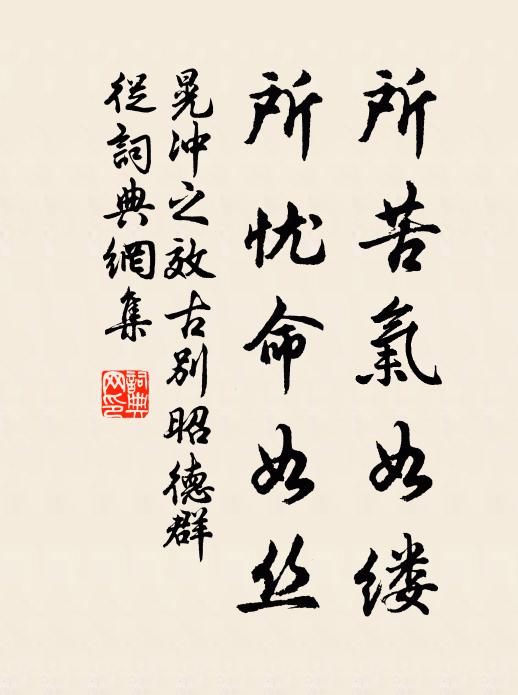 所苦氣如缕
所忧命如丝
晁冲之效古别昭德群
從詞典網集
詞典网印